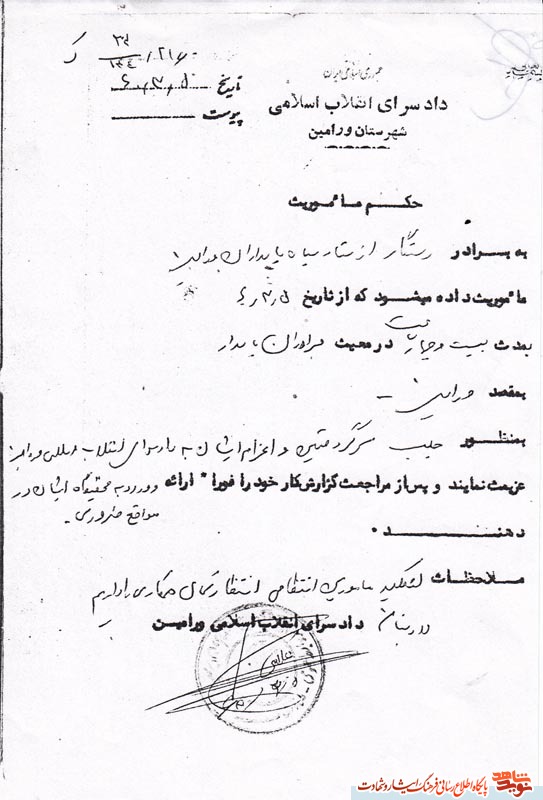 جمهوری اسلامی ایران
دادسرای انقلاب اسلامی
شهرستان ورامین
تاریخ
پیوست
حکم مأموریت
به برادر رستگار از ستاد سپاه پاسداران ورامین
مأموریت داده میشود که از تاریخ
بمدت بیست و چهار ساعت در معیت برادران پاسدار
بمقصد ورامین
بمنظور جلب و اعزام ایشان به دادسرای انقلاب اسلامی ورامین
عزیمت نمایند و پس از مراجعت گزارش کار خود را فوراً ارائه و ورود به مخفیگاه ایشان در
مواقع ضروری
دهند.
ملاحظات از کلیه مامورین انتظامی انتظار همکاری را داریم
دادستان دادسرای انقلاب اسلامی ورامین
نوید شاهد پایگاه اطلاع رسانی فرهنگ ایثار و شهادت